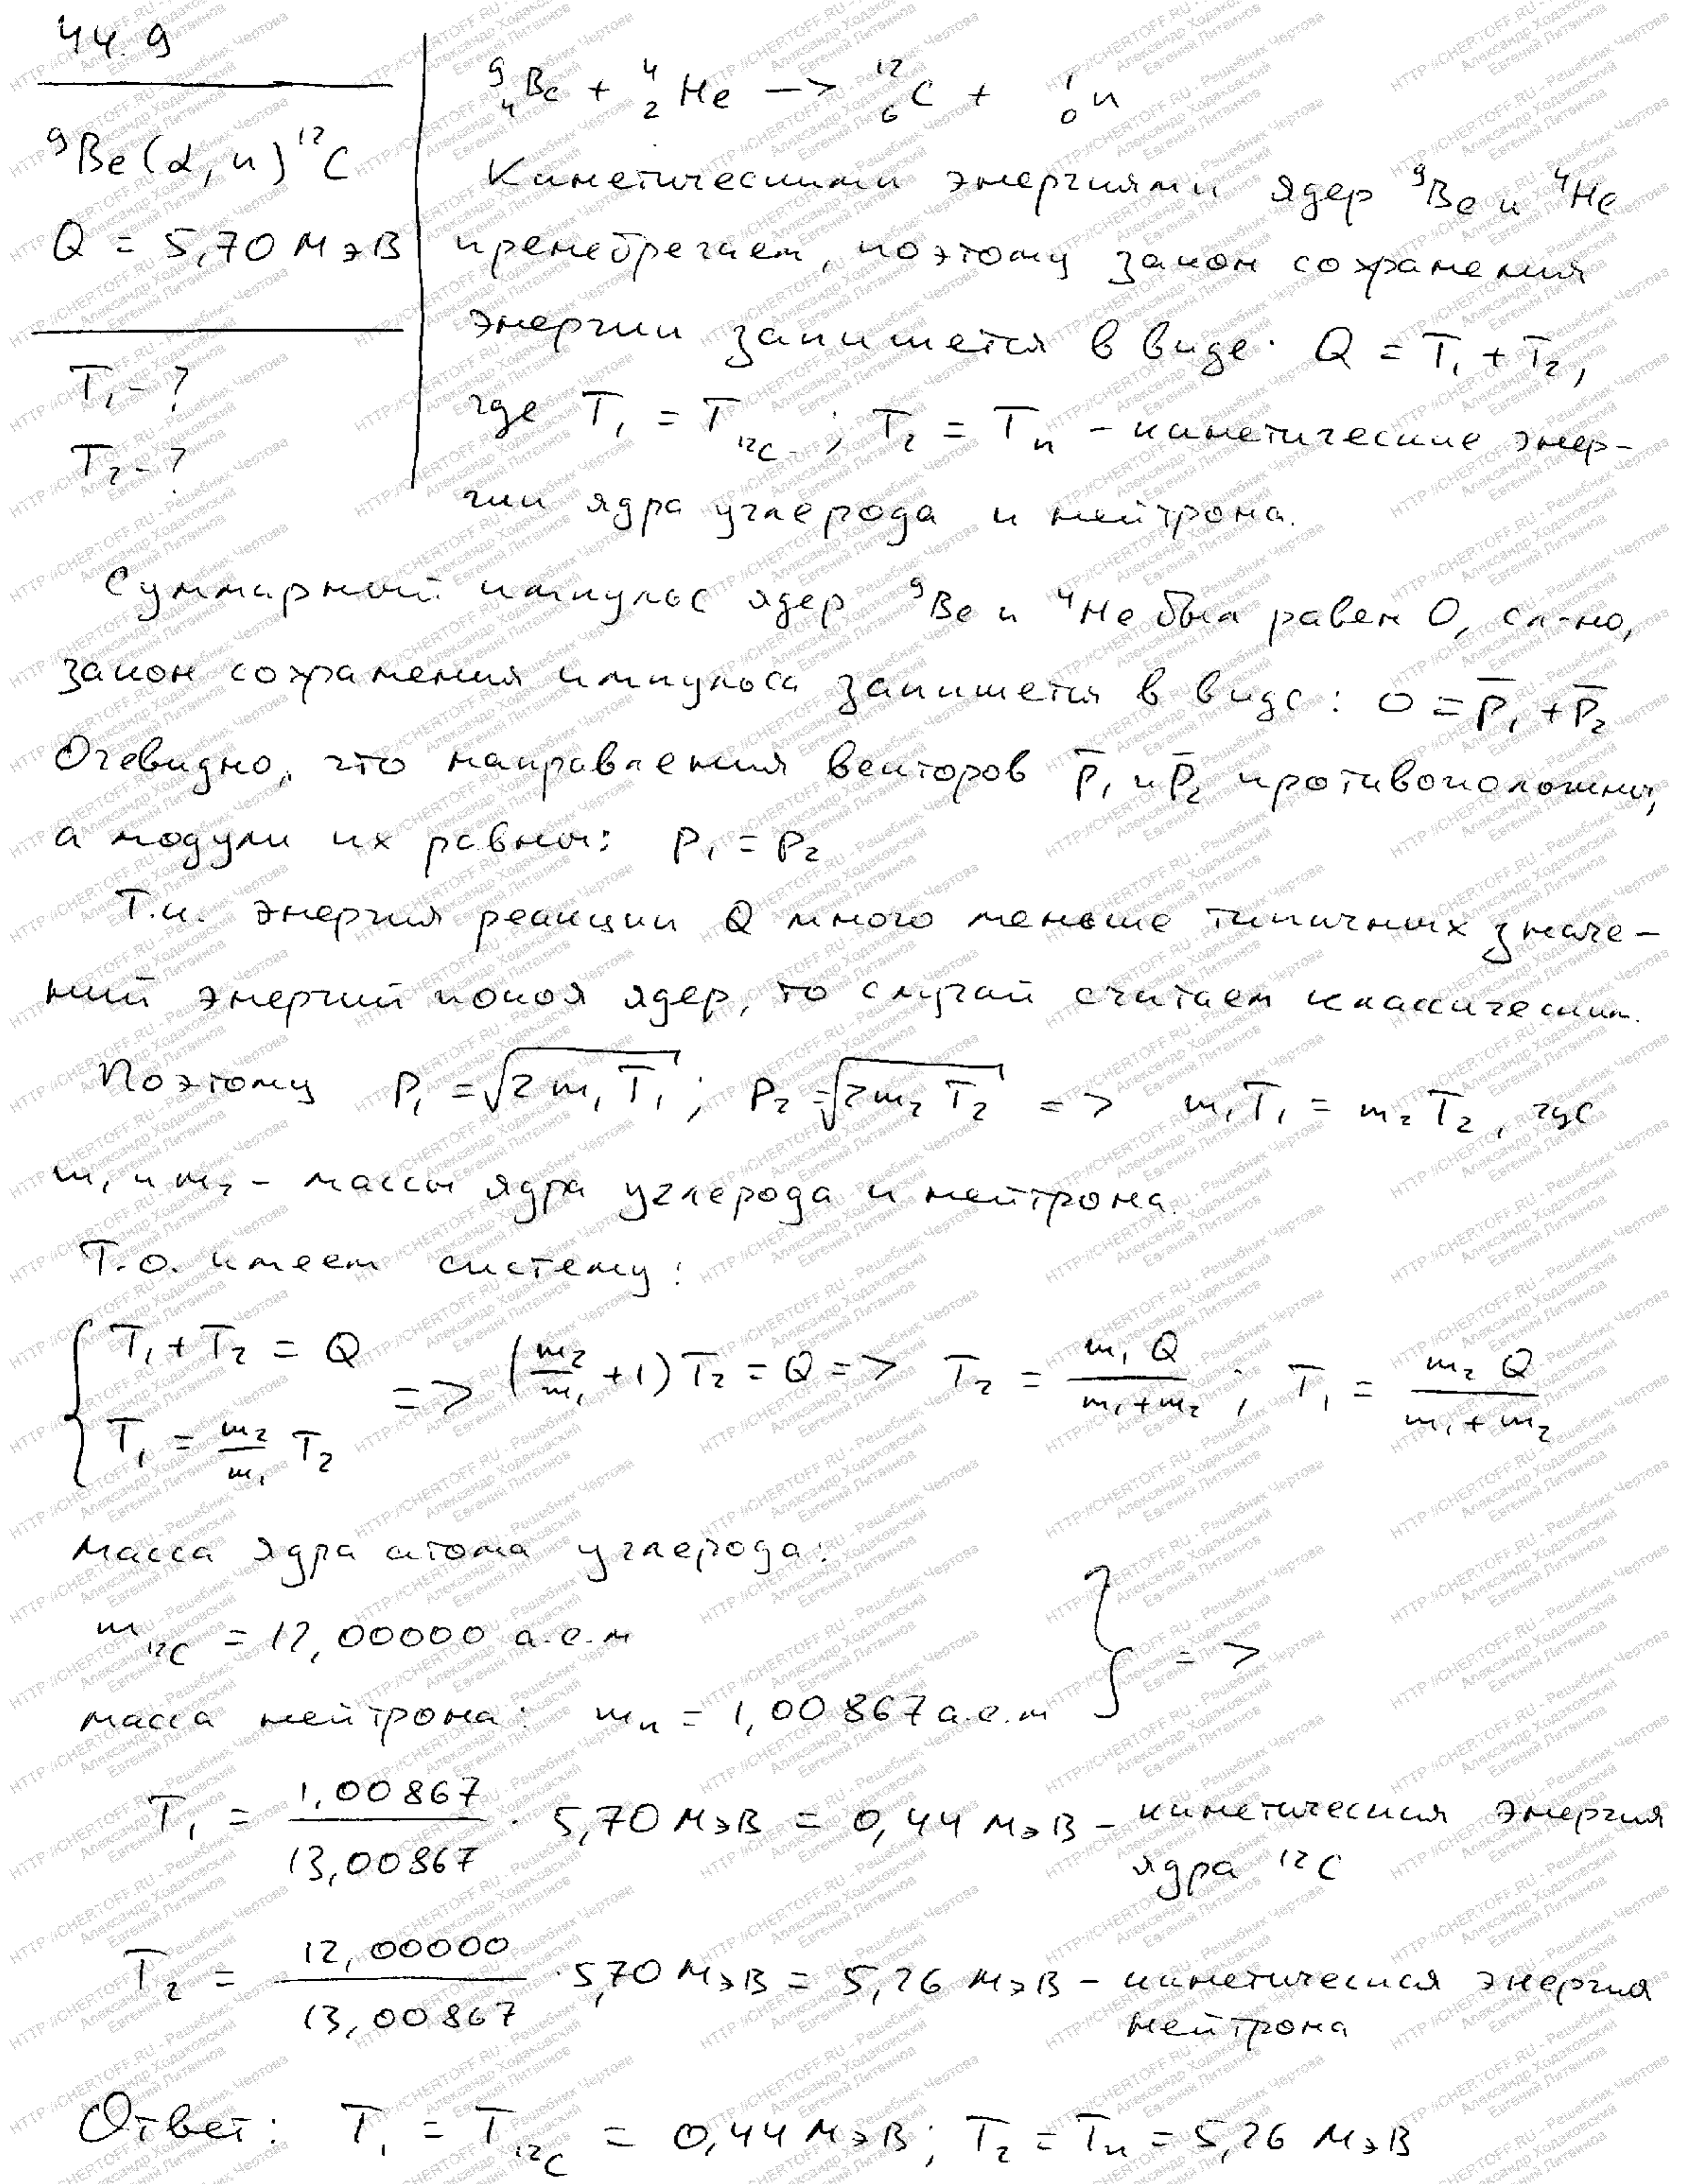 44.9
⁹Be(α, n)¹²C
Q = 5,70 МэВ
T₁ - ?
T₂ - ?
⁹₄Be + ⁴₂He —> ¹²₆C + ¹₀n
Кинетическими энергиями ядер ⁹Be и ⁴He
пренебрегаем, поэтому закон сохранения
энергии запишется в виде: Q = T₁ + T₂,
где T₁ = T₁₂C ; T₂ = Tₙ - кинетические энер-
гии ядра углерода и нейтрона.
Суммарный импульс ядер ⁹Be и ⁴He был равен 0, сл-но,
закон сохранения импульса запишется в виде: 0 = p̄₁ + p̄₂
Очевидно, что направления векторов p̄₁ и p̄₂ противоположны,
а модули их равны: p₁ = p₂
Т.к. энергия реакции Q много меньше типичных значе-
ний энергий покоя ядер, то случай считаем классическим.
Поэтому p₁ = √(2m₁T₁) ; p₂ = √(2m₂T₂) => m₁T₁ = m₂T₂, где
m₁ и m₂ - массы ядра углерода и нейтрона.
Т.о. имеем систему:
{ T₁ + T₂ = Q
T₁ = m₂/m₁ T₂ => (m₂/m₁ + 1) T₂ = Q => T₂ = m₁Q/(m₁+m₂) ; T₁ = m₂Q/(m₁+m₂)
масса ядра атома углерода:
m₁₂C = 12,00000 а.е.м
масса нейтрона: mₙ = 1,00867 а.е.м } =>
T₁ = 1,00867/13,00867 · 5,70 МэВ = 0,44 МэВ - кинетическая энергия
ядра ¹²C
T₂ = 12,00000/13,00867 · 5,70 МэВ = 5,26 МэВ - кинетическая энергия
нейтрона
Ответ: T₁ = T₁₂C = 0,44 МэВ ; T₂ = Tₙ = 5,26 МэВ
HTTP://CHERTOFF.RU - Решебник Чертова
Александр Ходаковский
Евгений Литвинов